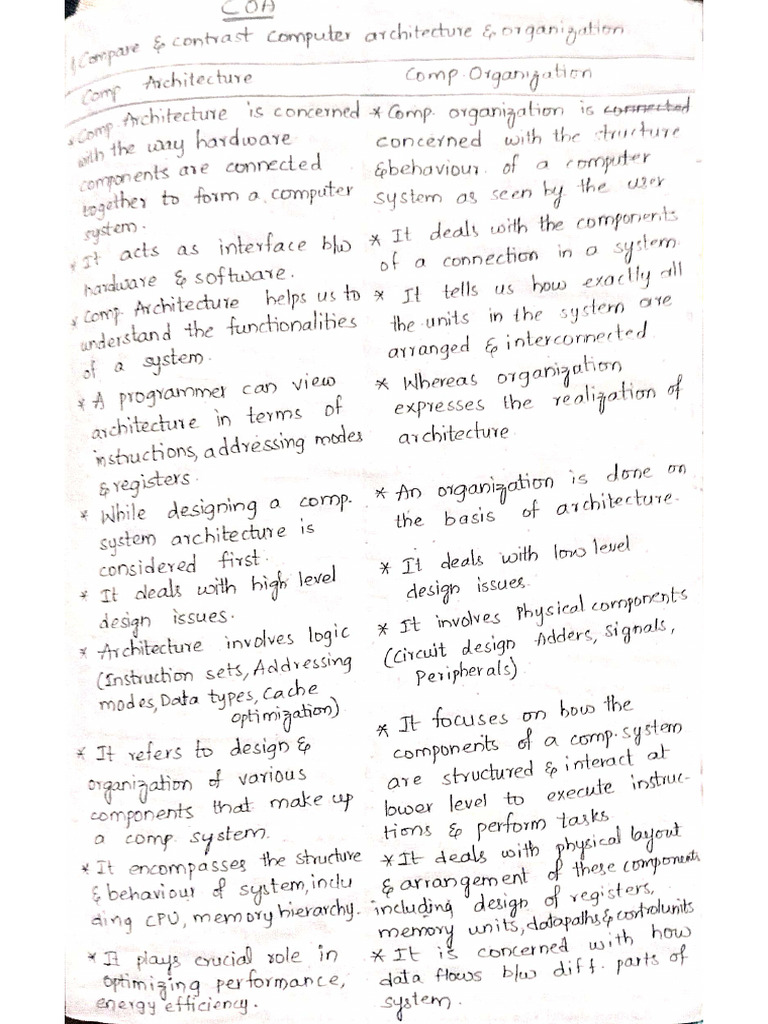 COA
1) Compare & contrast computer architecture & organization
Comp Architecture
* Comp. Architecture is concerned
with the way hardware
components are connected
together to form a computer
system.
* It acts as interface b/w
hardware & software.
* Comp. Architecture helps us to
understand the functionalities
of a system.
* A programmer can view
architecture in terms of
instructions, addressing modes
& registers.
* While designing a comp.
system architecture is
considered first.
* It deals with high level
design issues.
* Architecture involves logic
(Instruction sets, Addressing
modes, Data types, Cache
optimization)
* It refers to design &
organization of various
components that make up
a comp. system.
* It encompasses the structure
& behaviour of system, inclu
ding CPU, memory hierarchy.
* It plays crucial role in
optimizing performance,
energy efficiency.
Comp. Organization
* Comp. organization is connected
concerned with the structure
& behaviour of a computer
system as seen by the user
* It deals with the components
of a connection in a system.
* It tells us how exactly all
the units in the system are
arranged & interconnected
* Whereas organization
expresses the realization of
architecture
* An organization is done on
the basis of architecture.
* It deals with low level
design issues.
* It involves Physical components
(Circuit design Adders, Signals,
Peripherals)
* It focuses on how the
components of a comp. system
are structured & interact at
lower level to execute instruc-
tions & perform tasks
* It deals with physical layout
& arrangement of these components
including design of registers,
memory units, datapaths & control units
* It is concerned with how
data flows b/w diff. parts of
system.